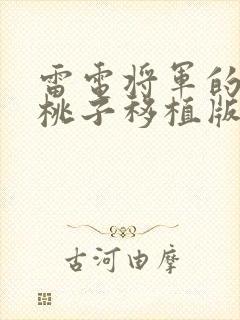 雷電将軍的
桃子移植版
古河由摩